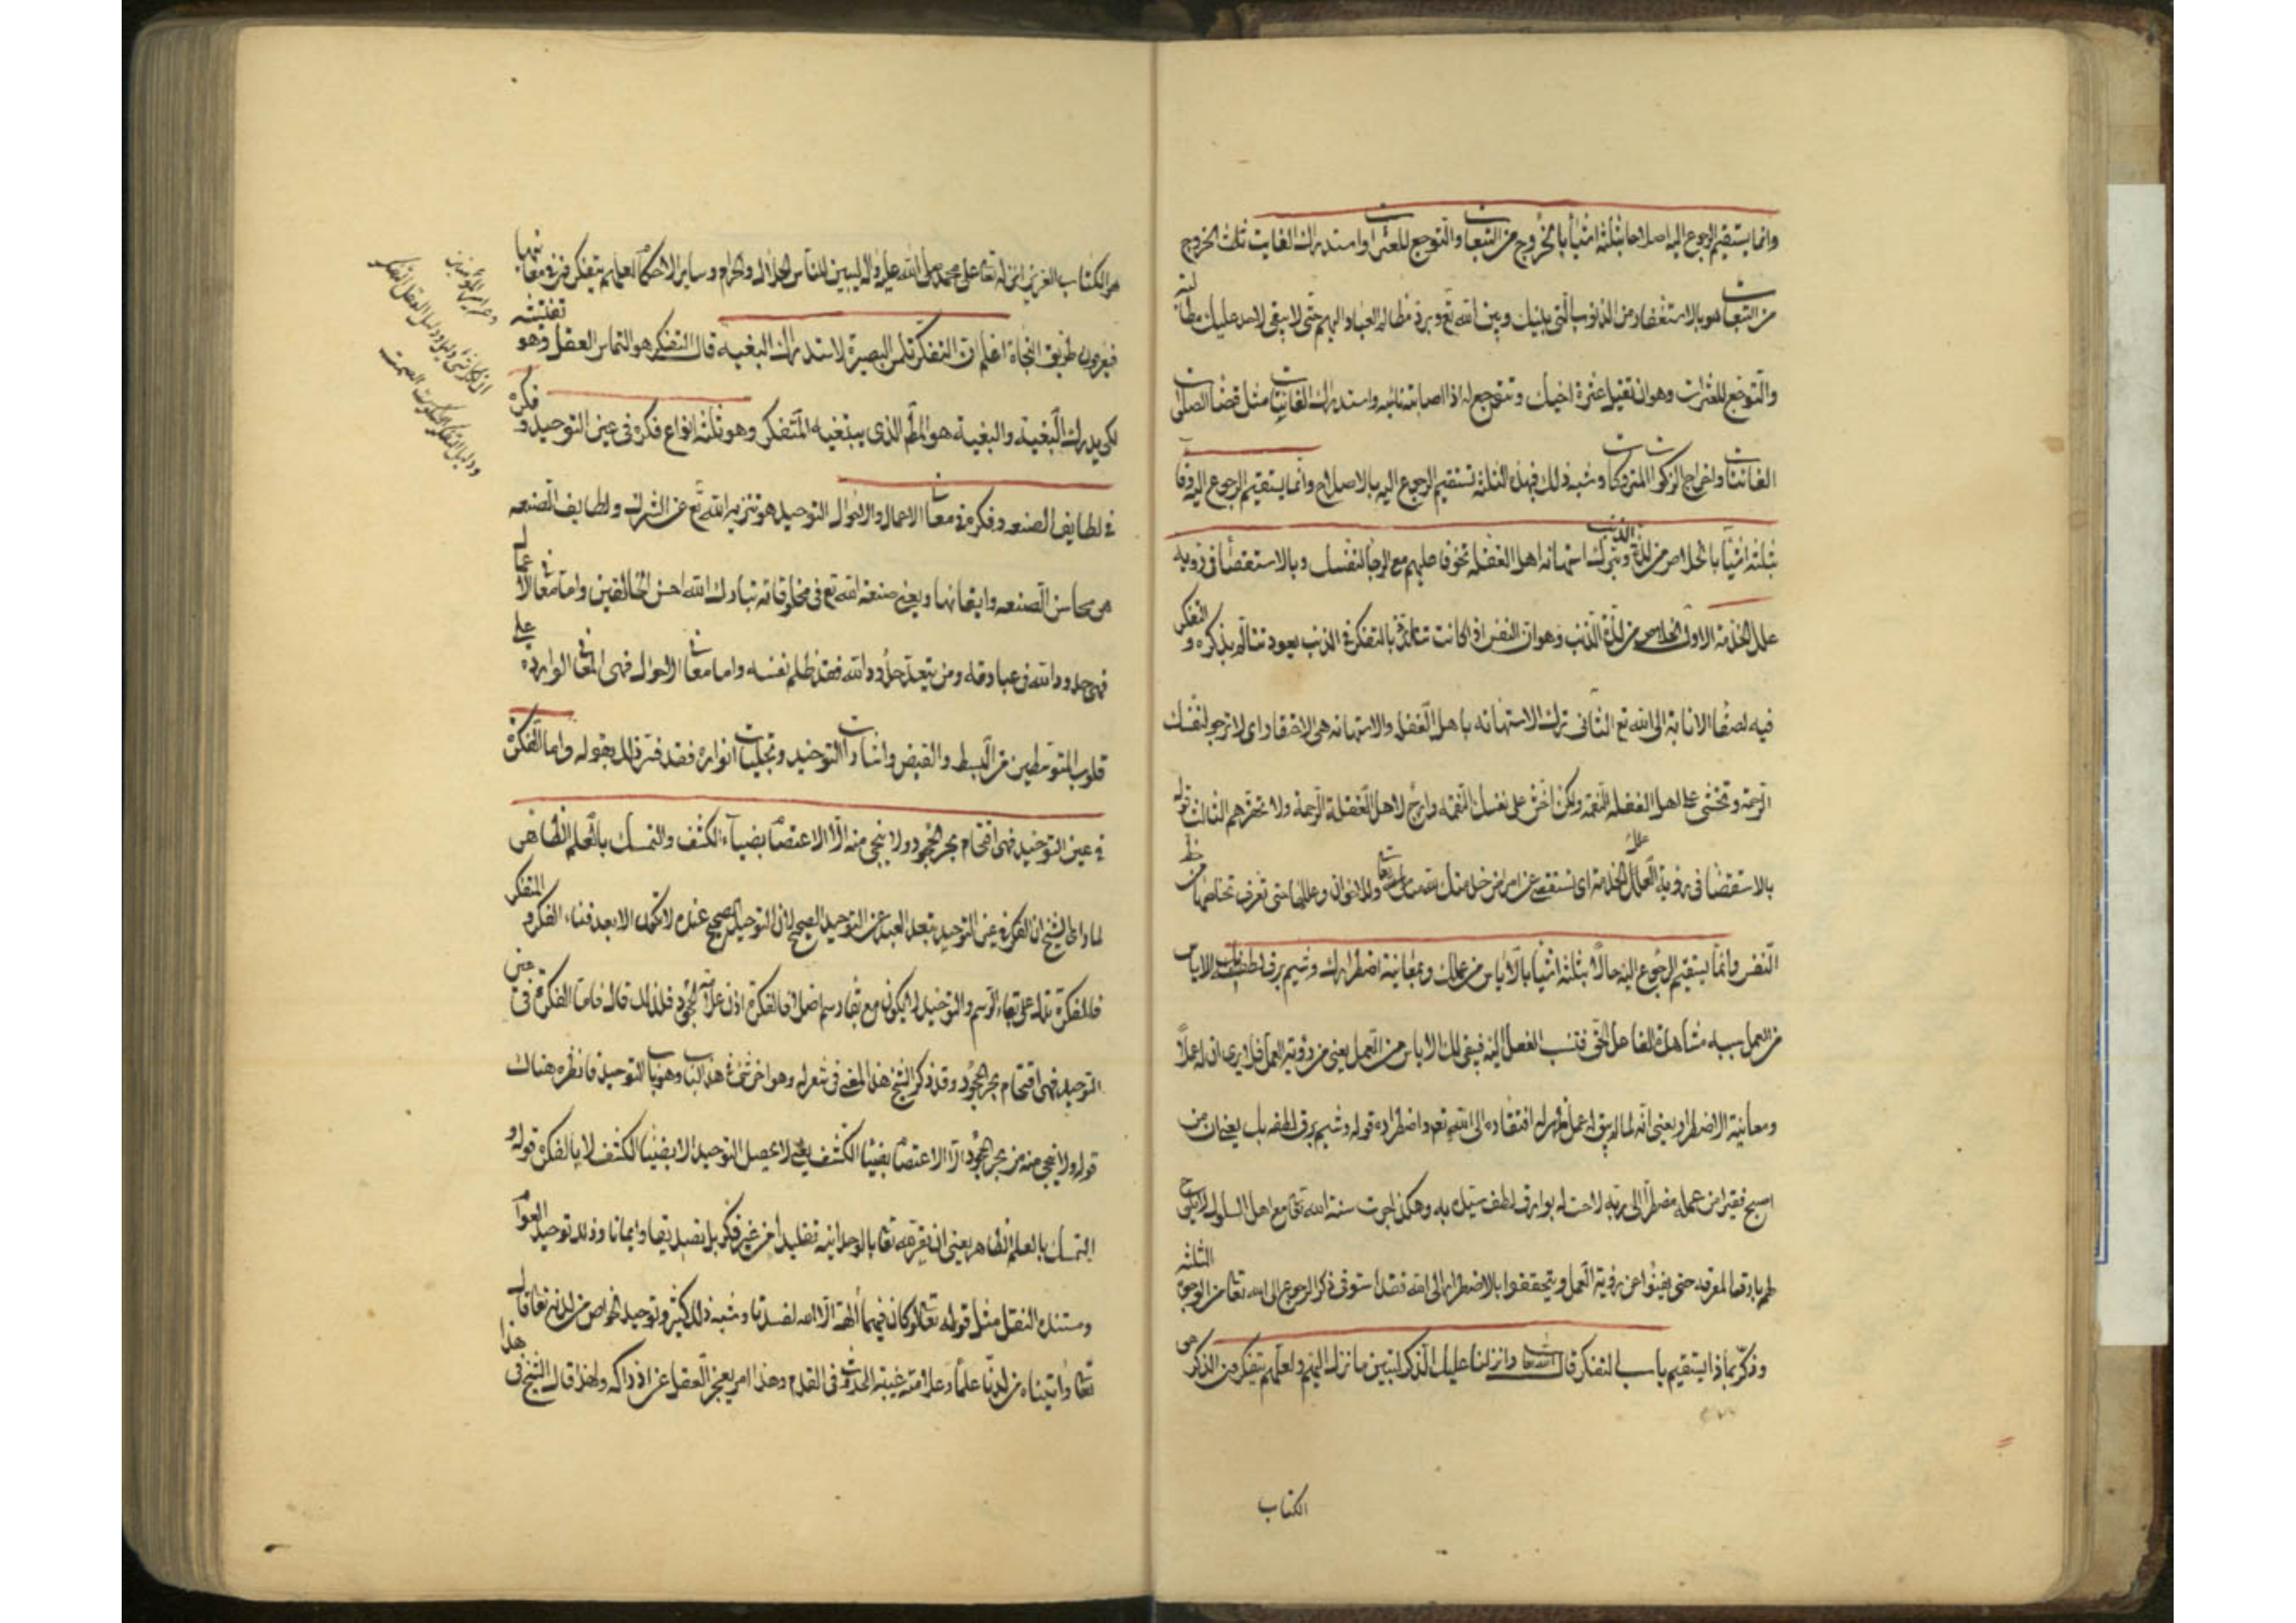 وانما يستقيم الرجوع اليه اصلاحا بثلثة اشيأ بالخروج من التبعات والتوجع للعثرات واستدراك الفايتات الخروج
من التبعات هو بالاستغفار من الذنوب التى بينك وبين الله تع وبرد مظالم العباد اليهم حتى لا يبقى لاحد عليك مظلمة
والتوجع للعثرات وهو ان تقيل عثرة اخيك وتتوجع له اذا اصابته نائبه واستدراك الفايتات مثل قضا الصلوات
الفائتات واخراج الزكوات المتروكات وشبه ذلك فبهذه الثلثة تستقيم الرجوع اليه بالاصلاح وانما يستقيم الرجوع اليه وفآ
بثلثة اشيآ بالخلاص من لذة الذنب وبترك استهانة اهل الغفلة تخوفا عليهم مع الرجآ لنفسك وبالاستقصأ فى رؤيه
علل الخدمة الاول الخلاص من لذة الذنب وهو ان النفس اذا كانت تتلذذ بالتفكر فى الذنب يعود تتألم بذكره و التفكر
فيه لصفآ الانابة الى الله تع الثانى ترك الاستهانه باهل الغفله والاستهانه هى الاحتقار اى لا ترجو لنفسك
الرحمة وتخشى على اهل الغفله النقمه ولكن اخش على نفسك النقمه وارج لاهل الغفلة الرحمة ولا تحقرهم الثالث قوله
بالاستقصآ فى رؤية علل الخدمة اى تستقصى عن امراض خدمتك وعللها حتى تعرف تخلصها من حظ
النفس وانما يستقيم الرجوع اليه حالا بثلثة اشيأ بالاياس من عملك وبمعاينة اضطرارك وشيم برق لطفه بك الاياس
من العمل سببه مشاهدة الفاعل الحق فتنسب الفعل اليه فيبقى لك الاياس من العمل يعنى من رؤية العمل فلا يرى ان له عملاً
ومعاينة الاضطرار يعنى انه لما لم يبق له عمل ظهر له افتقاره الى الله تع واضطراره قوله وشيم برق لطفه بك يعنى ان من
اصبح فقيرا من عمله مضطراً الى ربه لاحت له بوارق لطف سيده به وهكذا جرت سنة الله تعا مع اهل السلوك لا يلوح
لهم بارقة المعرفه حتى يفنوا عن رؤية العمل ويتحققوا بالاضطرار الى الله فقد استوفى ذكر الرجوع الى الله تعا من الوجوه الثلثه
وذكر بماذا يستقيم باب التفكر قال الله تعا وانزلنا عليك الذكر لتبين ما نزل اليهم ولعلهم يتفكرون الذكر هى
الكتاب
هو الكتاب العزيز انزله تعا على محمد صلى الله عليه واله ليبين للناس الحلال والحرام وساير الاحكام لعلهم يتفكرون فى معانيها
فيعرون طريق النجاة اعلم ان التفكر تلمس البصيرة لاستدراك البغيه قال التفكر هو التماس العقل وهو تفتيشه
لكى يدرك البغية والبغية هو المط الذى يبتغيه المتفكر وهو ثلثة انواع فكرة فى عين التوحيد و فكره
فى لطايف الصنعه وفكرة فى معانى الاعمال والاحوال التوحيد هو تنزيه الله تع عن الشرك ولطايف الصنعه
هى محاسن الصنعه واتقانها ويعنى صنعة الله تع فى مخلوقاته تبارك الله احسن الخالقين واما معانى الاعمال
فهى حدود الله فى عباده ومن يتعد حدود الله فقد ظلم نفسه واما معانى الاحوال فهى المعانى الوارده على
قلوب المتوسطين من البسط والقبض واشارات التوحيد وتجليات انواره فقد فسر ذلك بقوله واما الفكرة
فى عين التوحيد فهى اقتحام بحر الجحود ولا ينجى منه الا الاعتصام بضيآء الكشف والتمسك بالعلم الظاهر
لما راى الشيخ ان الفكرة فى عين التوحيد تبعد العبد عن التوحيد الصحيح لان التوحيد الصحيح عنده لا يكون الا بعد فناء الفكر و المتفكر
فالفكرة تدل على بقاء الرسم والتوحيد لا يكون مع بقاء رسم اصلا فالفكرة اذن علامة الجحود فلذلك قال فاما الفكرة فى عين
التوحيد فهى اقتحام بحر الجحود وقد ذكر الشيخ هذا المعنى فى شعر له وهو اخر شئ فى هذا الكتاب وهو باب التوحيد فانظره هناك
قوله ولا ينجى منه من بحر الجحود الا الاعتصام بضيآ الكشف يعنى لا يحصل التوحيد الا بضيآ الكشف لا بالفكر قوله و
التمسك بالعلم الظاهر يعنى ان يقر لله تعا بالوحدانية تقليدا من غير فكر بل تصديقا وايمانا وذلك توحيد العوام
ومستنده النقل مثل قوله تعالى لو كان فيهما آلهة الا الله لفسدتا وشبه ذلك كثير وتوحيد الخواص من لدنه تعا قال
تعا واتيناه من لدنا علماً وعلامته غيبة الحدوث فى القدم وهذا امر يعجز العقل عن ادراكه ولهذا قال الشيخ فى هذا